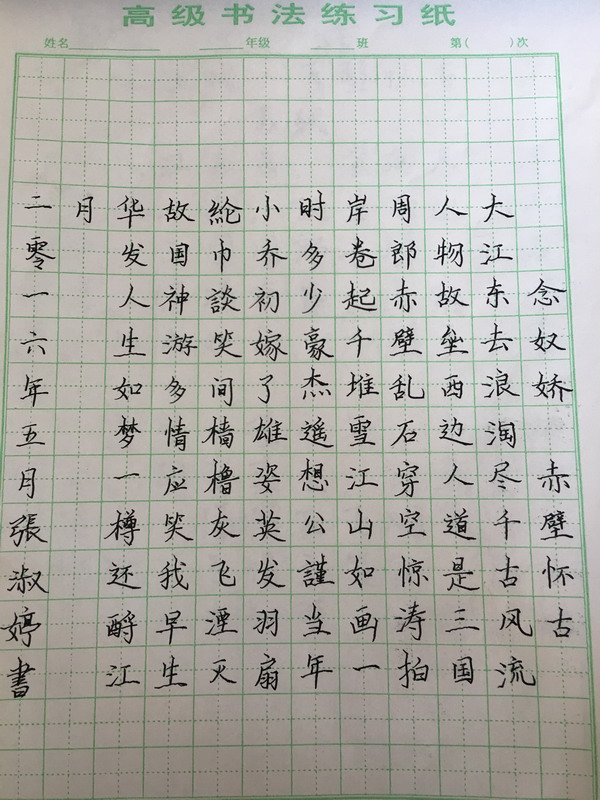 高级书法练习纸
姓名 年级 班 第( )次
念奴娇 赤壁怀古
大江东去浪淘尽千古风流
人物故垒西边人道是三国
周郎赤壁乱石穿空惊涛拍
岸卷起千堆雪江山如画一
时多少豪杰遥想公謹当年
小乔初嫁了雄姿英发羽扇
綸巾談笑间樯橹灰飞湮灭
故国神游多情应笑我早生
华发人生如梦一樽还酹江
月
二零一六年五月張淑婷書